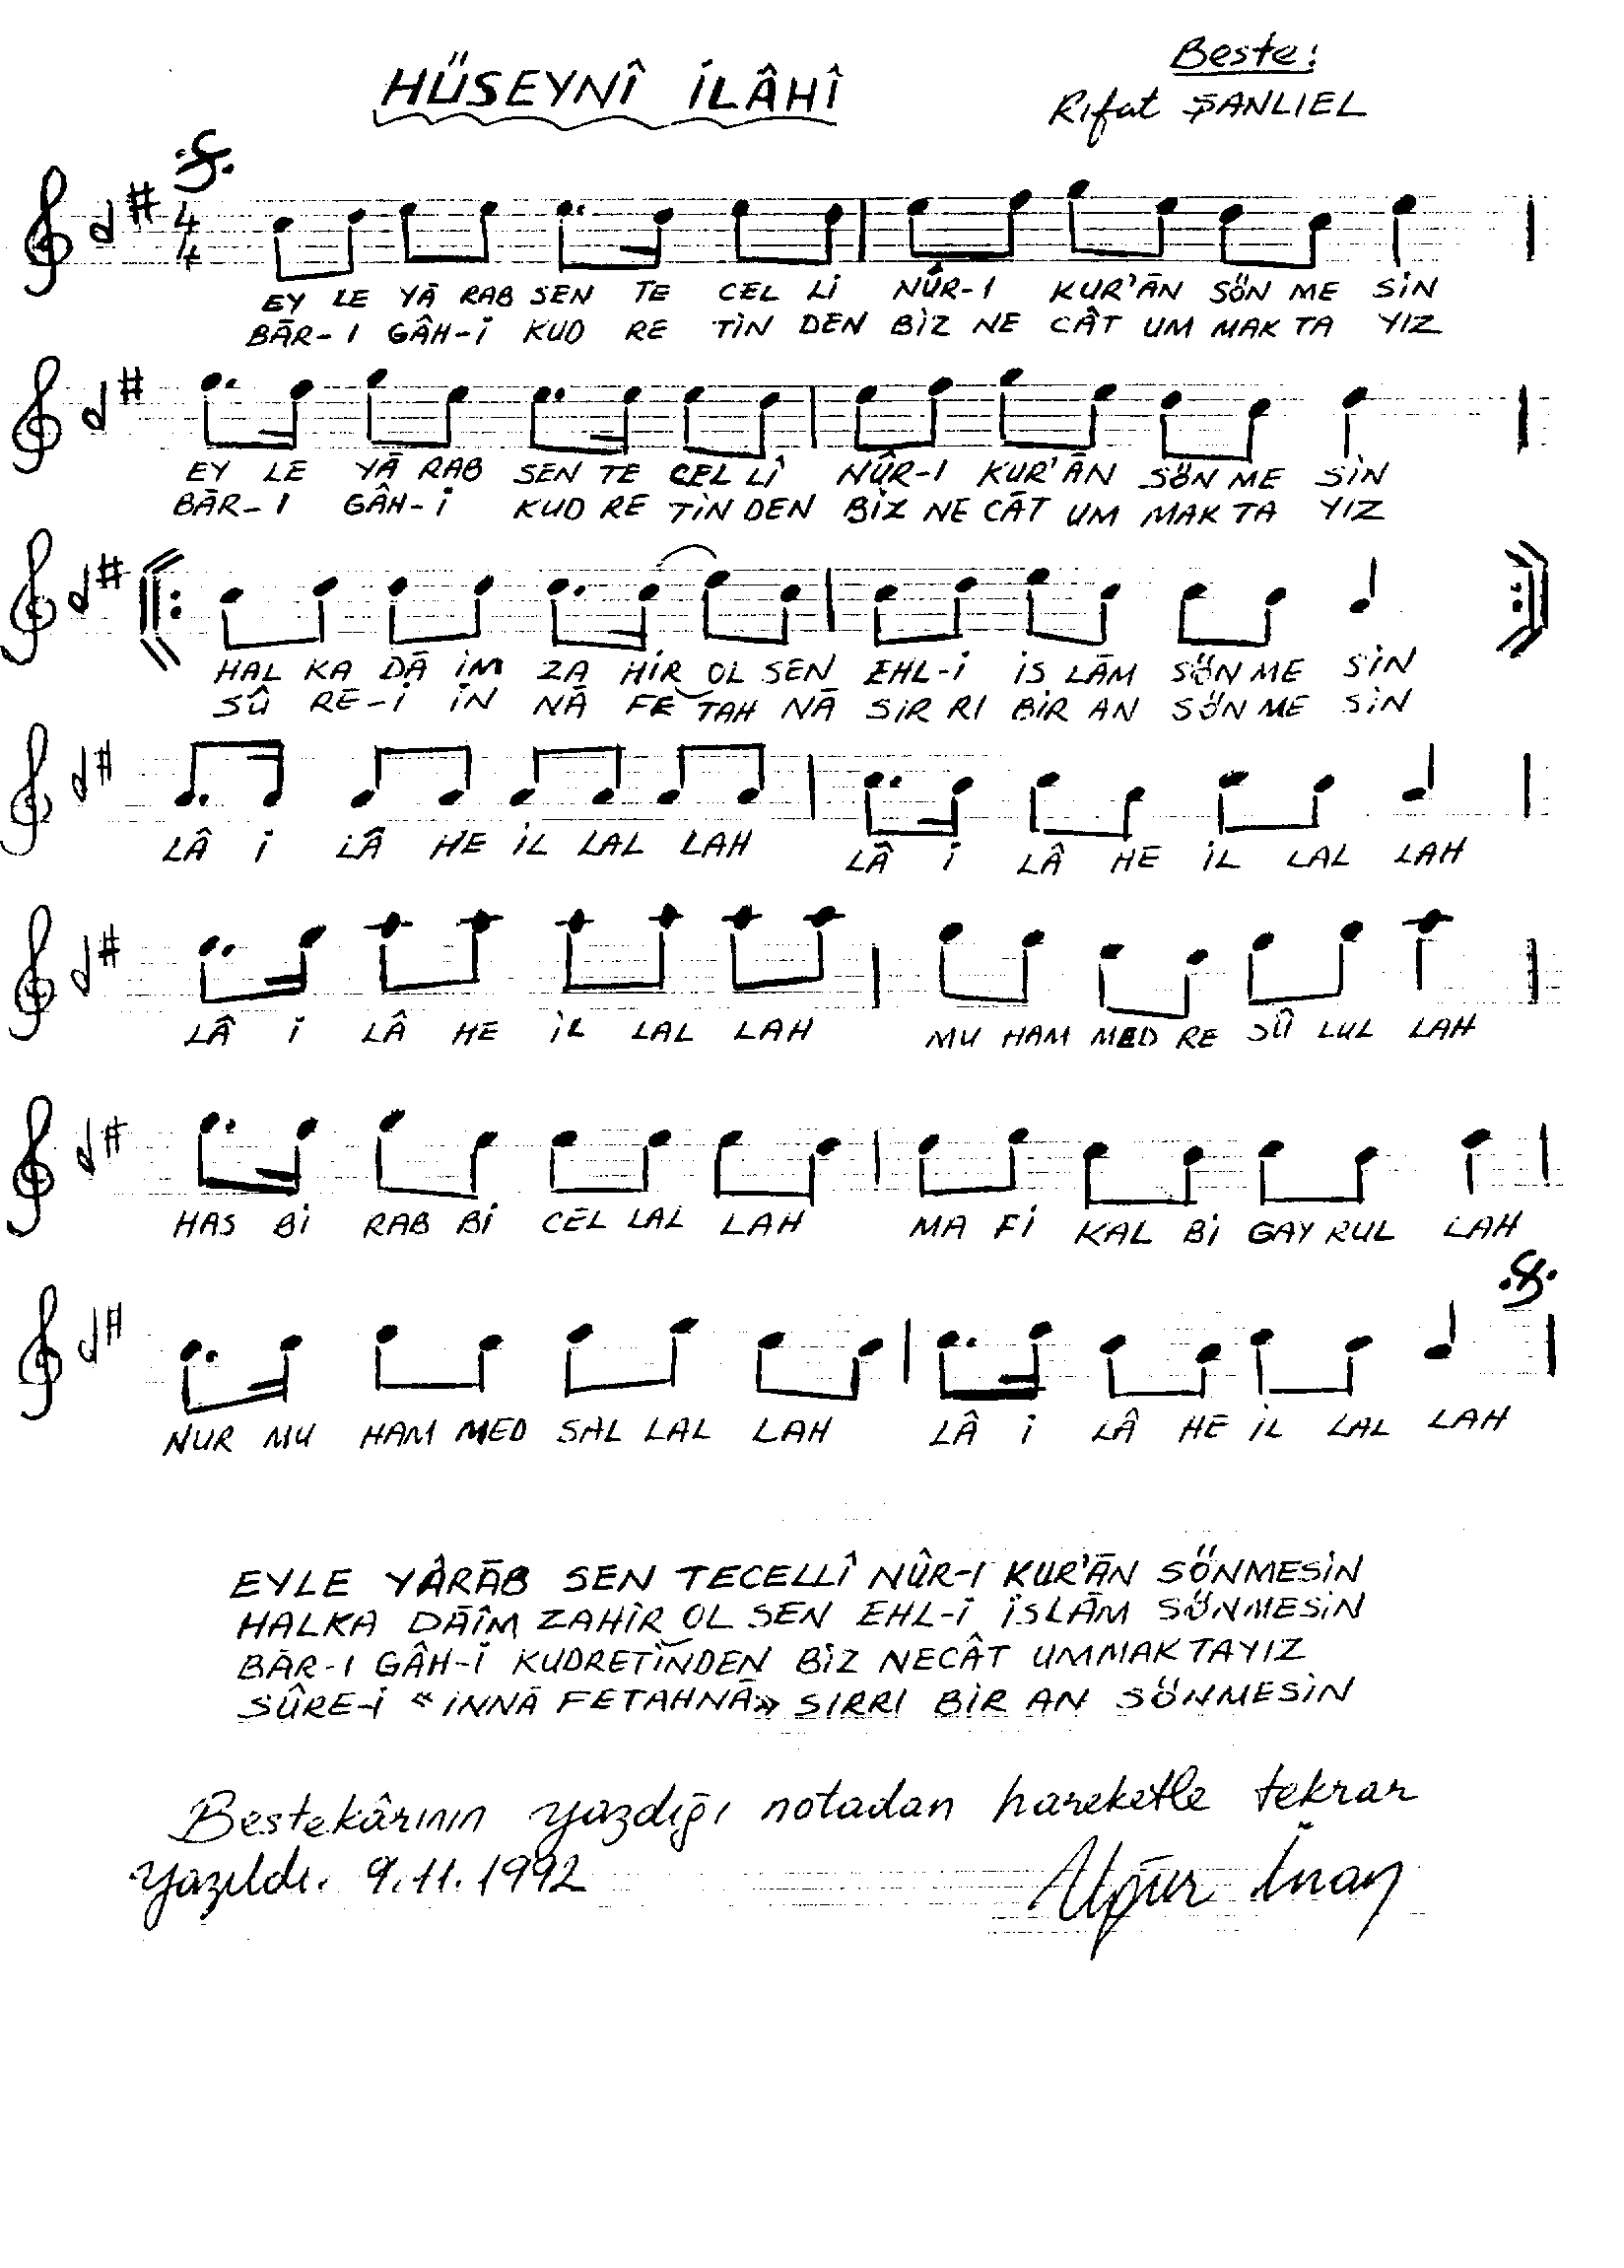 HÜSEYNÎ İLÂHÎ
Beste:
Rıfat ŞANLIEL
4/4
EY LE YĀ RAB SEN TE CEL LI NÛR-I KUR'ĀN SÖN ME SİN
BĀR-I GÂH-İ KUD RE TİN DEN BİZ NE CÂT UM MAK TA YIZ
EY LE YĀ RAB SEN TE CEL LÎ NÛR-I KUR'ĀN SÖN ME SİN
BĀR-I GÂH-İ KUD RE TİN DEN BİZ NE CĀT UM MAK TA YIZ
HAL KA DĀ İM ZA HİR OL SEN EHL-İ İS LĀM SÖN ME SİN
SÛ RE-İ İN NĀ FE TAH NĀ SIR RI BİR AN SÖN ME SİN
LÂ İ LÂ HE İL LAL LAH LÂ İ LÂ HE İL LAL LAH
LÂ İ LÂ HE İL LAL LAH MU HAM MED RE SÛ LUL LAH
HAS Bİ RAB Bİ CEL LAL LAH MA Fİ KAL Bİ GAY RUL LAH
NUR MU HAM MED SAL LAL LAH LÂ İ LÂ HE İL LAL LAH
EYLE YÂRĀB SEN TECELLÎ NÛR-I KUR'ĀN SÖNMESİN
HALKA DĀÎM ZAHİR OL SEN EHL-İ İSLĀM SÖNMESİN
BĀR-I GÂH-İ KUDRETİNDEN BİZ NECÂT UMMAKTAYIZ
SÛRE-İ «İNNĀ FETAHNĀ» SIRRI BİR AN SÖNMESİN
Bestekârının yazdığı notadan hareketle tekrar
yazıldı. 9.11.1992
Uğur İnan